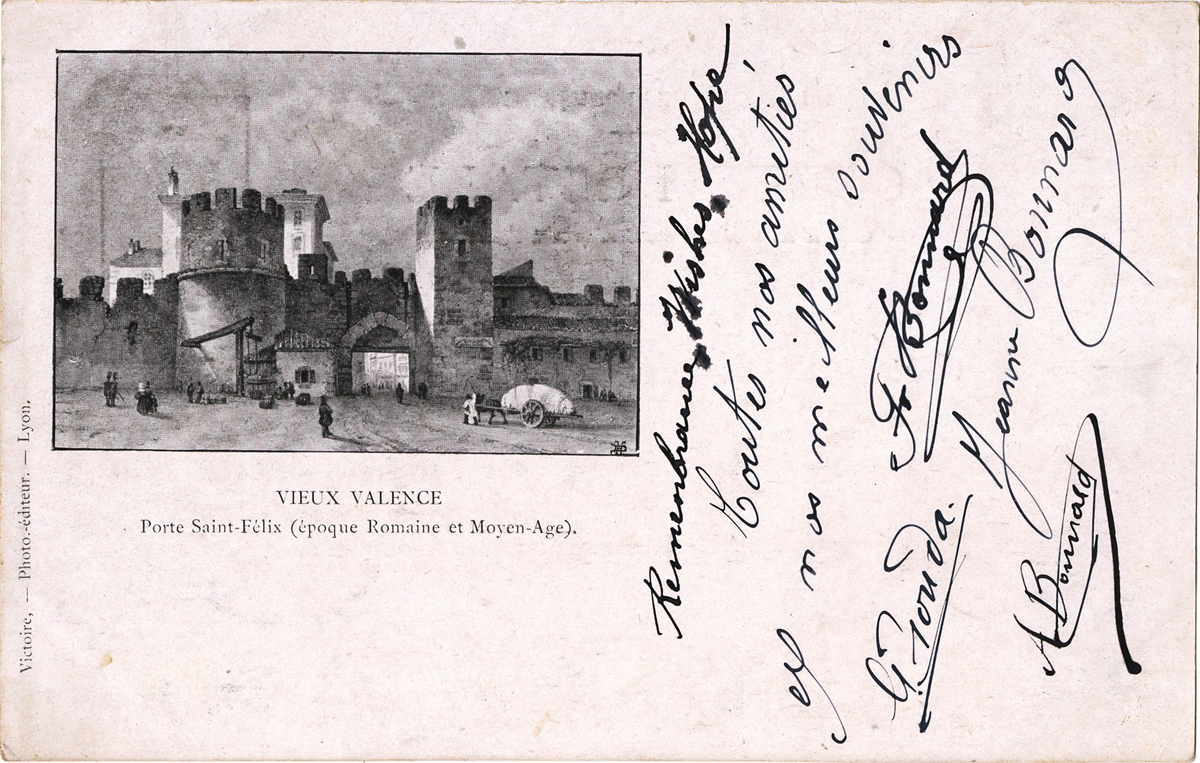 VIEUX VALENCE
Porte Saint-Félix (époque Romaine et Moyen-Age).
Victoire, — Photo.-éditeur. — Lyon.
Remembrance Wishes Hope,
Toutes nos amitiés
et nos meilleurs souvenirs
G. Fouda. Fr Bonnard
Jeanne Bonnard
A Bonnard